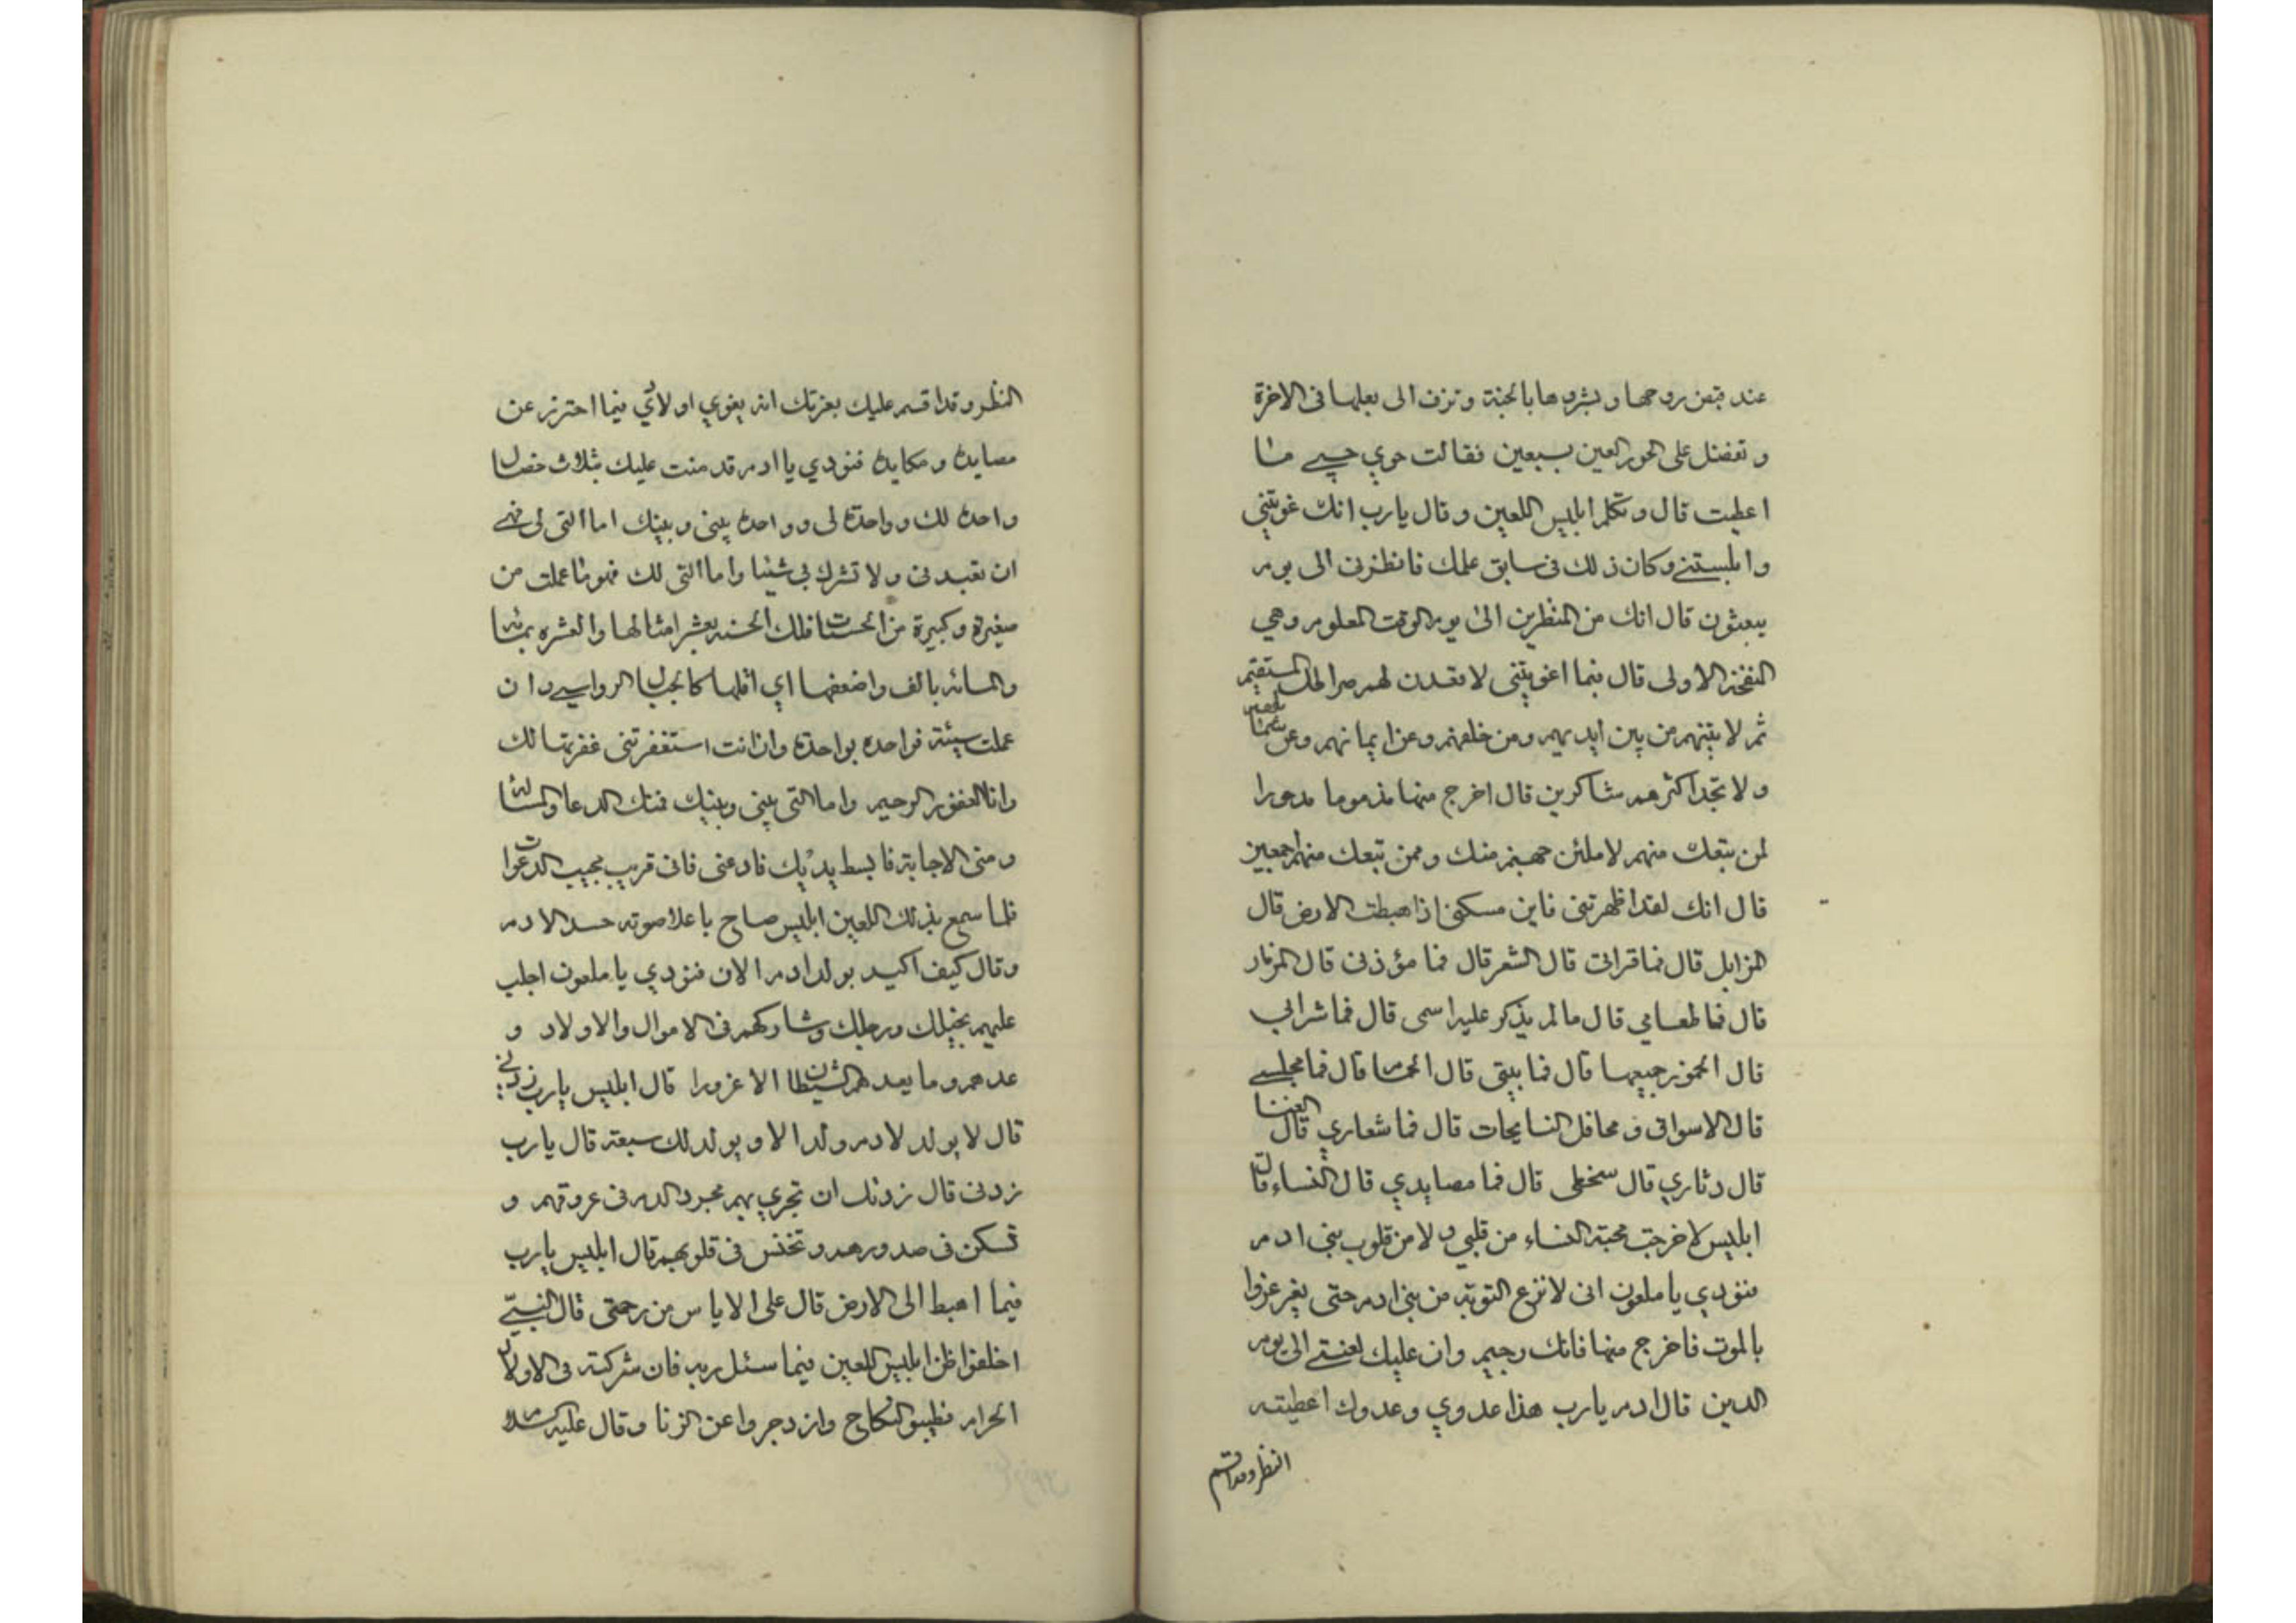 عند قبض روحها و بشروها بالجنة وتزف الى بعلها فى الاخرة
و تفضل على الحور العين بسبعين فقالت حوي حسبي ما
اعطيت قال و تكلم ابليس اللعين و قال يارب انك غويتني
وابلستني وكان ذلك فى سابق علمك فانظرنى الى يوم
يبعثون قال انك من المنظرين الى يوم الوقت المعلوم وهي
النفخة الاولى قال فبما اغويتنى لاقعدن لهم صراطك المستقيم
ثم لاتينهم من بين ايديهم ومن خلفهم وعن ايمانهم وعن شمائلهم
ولا تجد اكثرهم شاكرين قال اخرج منها مذموما مدحورا
لمن تبعك منهم لاملئن جهنم منك وممن تبعك منهم اجمعين
قال انك لقد اظهرتنى فاين مسكني اذا هبطت الارض قال
المزابل قال فما قرانى قال الشعر قال فما مؤذنى قال المزمار
قال فما طعامي قال مالم يذكر عليه اسمى قال فما شرابي
قال الخمور جميعها قال فما بيتى قال الحمام قال فما مجلسي
قال الاسواق و محافل النايحات قال فما شعاري قال الغنا
قال دثاري قال سخطى قال فما مصايدي قال النساء قال
ابليس لاخرجت محبة النساء من قلبي ولا من قلوب بني ادم
فنودي يا ملعون انى لا انزع التوبة من بني ادم حتى يغرغروا
بالموت فاخرج منها فانك رجيم وان عليك لعنتي الى يوم
الدين قال ادم يارب هذا عدوي وعدوك اعطيته
النظر وقد اقسم
النظر وقد اقسم عليك بعزتك انه يغوي اولادي فبما احترز عن
مصايده و مكايده فنودي يا ادم قد مننت عليك بثلاث خصال
واحدة لك وواحدة لى وواحدة بينى وبينك اما التى لى فهي
ان تعبدنى ولا تشرك بي شيئا واما التى لك فهو ما عملت من
صغيرة وكبيرة من الحسنات فلك الحسنه بعشر امثالها والعشره بمائه
والمائه بالف واضعفها اي اقلها كالجبال الرواسي وان
عملت سيئة فواحدة بواحدة وان انت استغفرتنى غفرتها لك
وانا الغفور الرحيم واما التى بينى وبينك فمنك الدعا والمسائلة
ومنى الاجابة فابسط يديك فادعنى فانى قريب مجيب الدعوات
فلما سمع بذلك اللعين ابليس صاح باعلا صوته حسدا لادم
وقال كيف اكيد بولد ادم الان فنودي يا ملعون اجلب
عليهم بخيلك ورجلك وشاركهم فى الاموال والاولاد و
عدهم وما يعدهم الشيطان الا غرورا قال ابليس يارب زدني
قال لا يولد لادم ولدا الا ويولد لك سبعة قال يارب
زدنى قال زدتك ان تجري بهم مجرد الدم فى عروقهم و
تسكن فى صدورهم و تخنس فى قلوبهم قال ابليس يارب
فيما اهبط الى الارض قال على الاياس من رحمتى قال النبي
اخلفوا ظن ابليس اللعين فيما سئل ربه فان شركته فى الاولاد
الحرام فطيبوا النكاح وازدجروا عن الزنا وقال عليه السلام